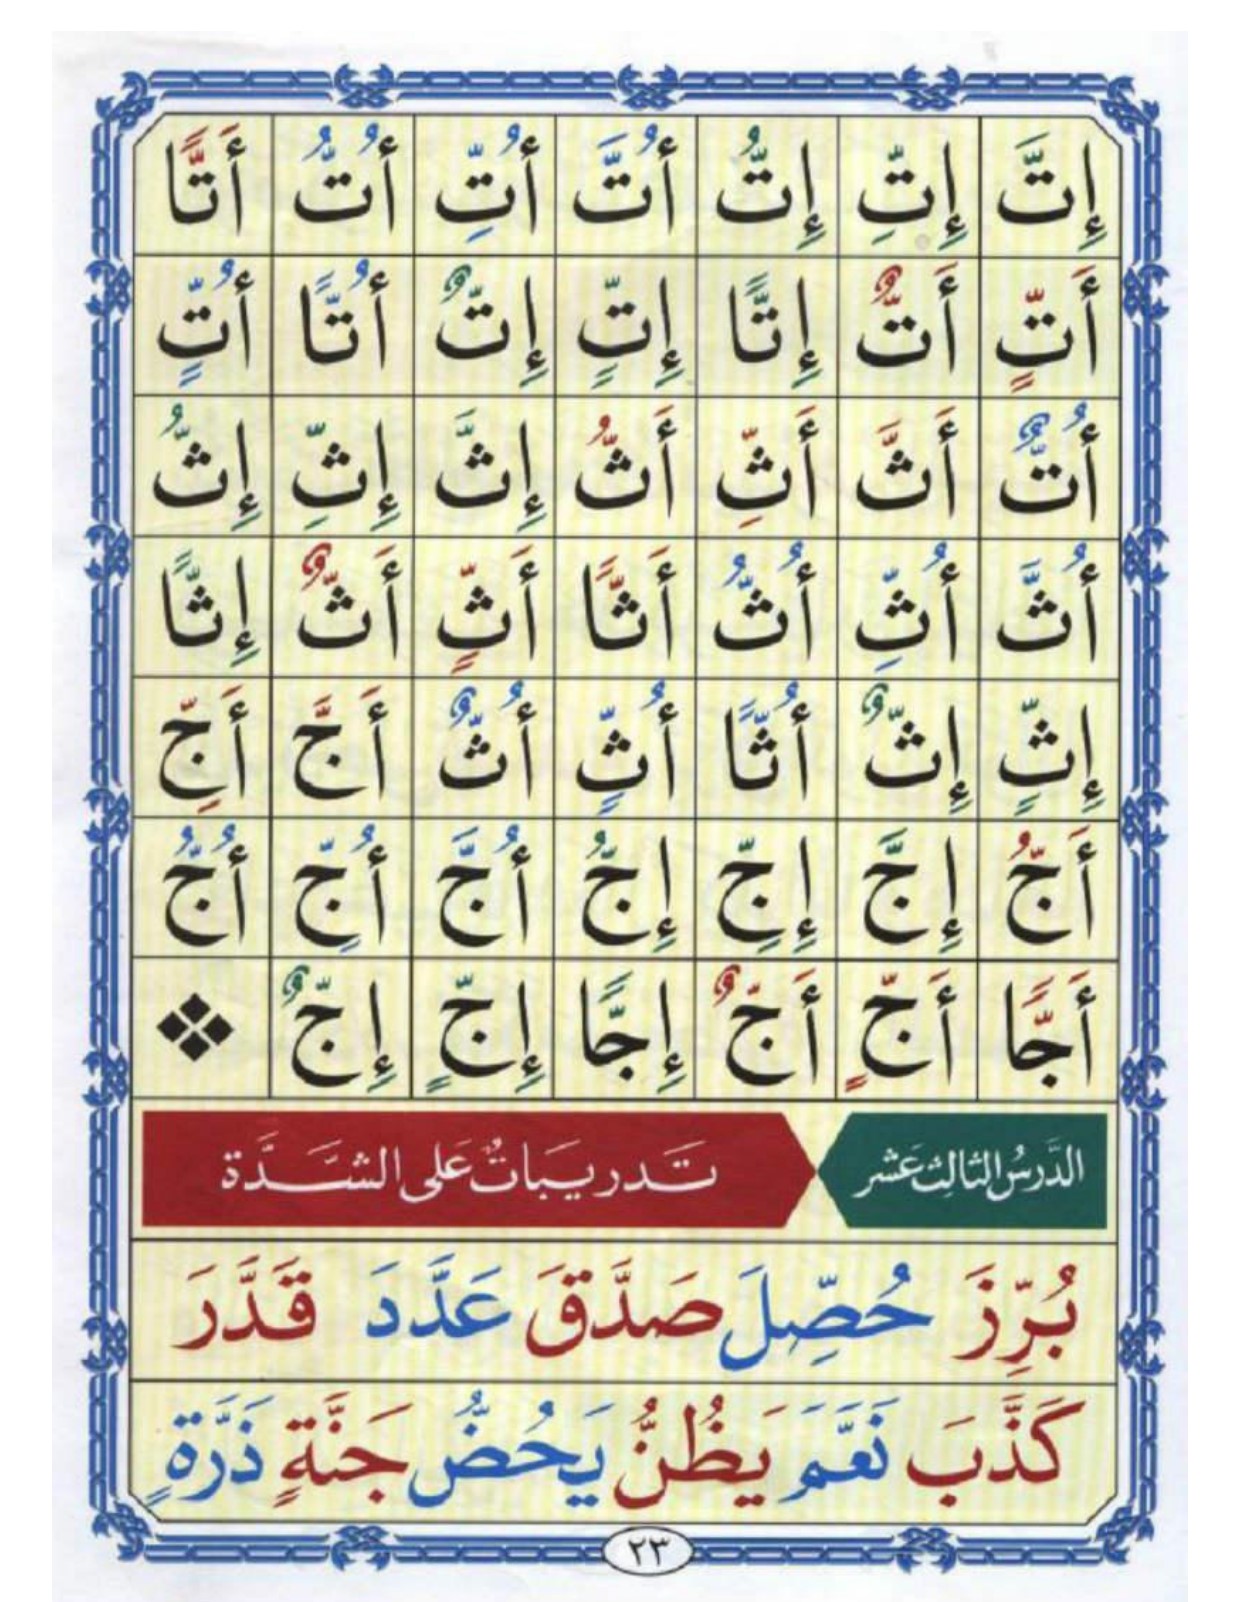 إِتَّ إِتِّ إِتُّ أُتَّ أُتِّ أُتُّ أَتًّا
أَتٍّ أَتٌّ إِتًّا إِتٍّ إِتٌّ أُتًّا أُتٍّ
أُتٌّ أَثَّ أَثِّ أَثُّ إِثَّ إِثِّ إِثُّ
أُثَّ أُثِّ أُثُّ أَثًّا أَثٍّ أَثٌّ إِثًّا
إِثٍّ إِثٌّ أُثًّا أُثٍّ أُثٌّ أَجَّ أَجِّ
أَجُّ إِجَّ إِجِّ إِجُّ أُجَّ أُجِّ أُجُّ
أَجًّا أَجٍّ أَجٌّ إِجًّا إِجٍّ إِجٌّ
الدَّرسُ الثالِث عَشر تَدريبَاتٌ عَلى الشَّدَّة
بُرِّزَ حُصِّلَ صَدَّقَ عَدَّدَ قَدَّرَ
كَذَّبَ نَعَّمَ يَظُنُّ يَحُضُّ جَنَّةٍ ذَرَّةٍ
٢٣